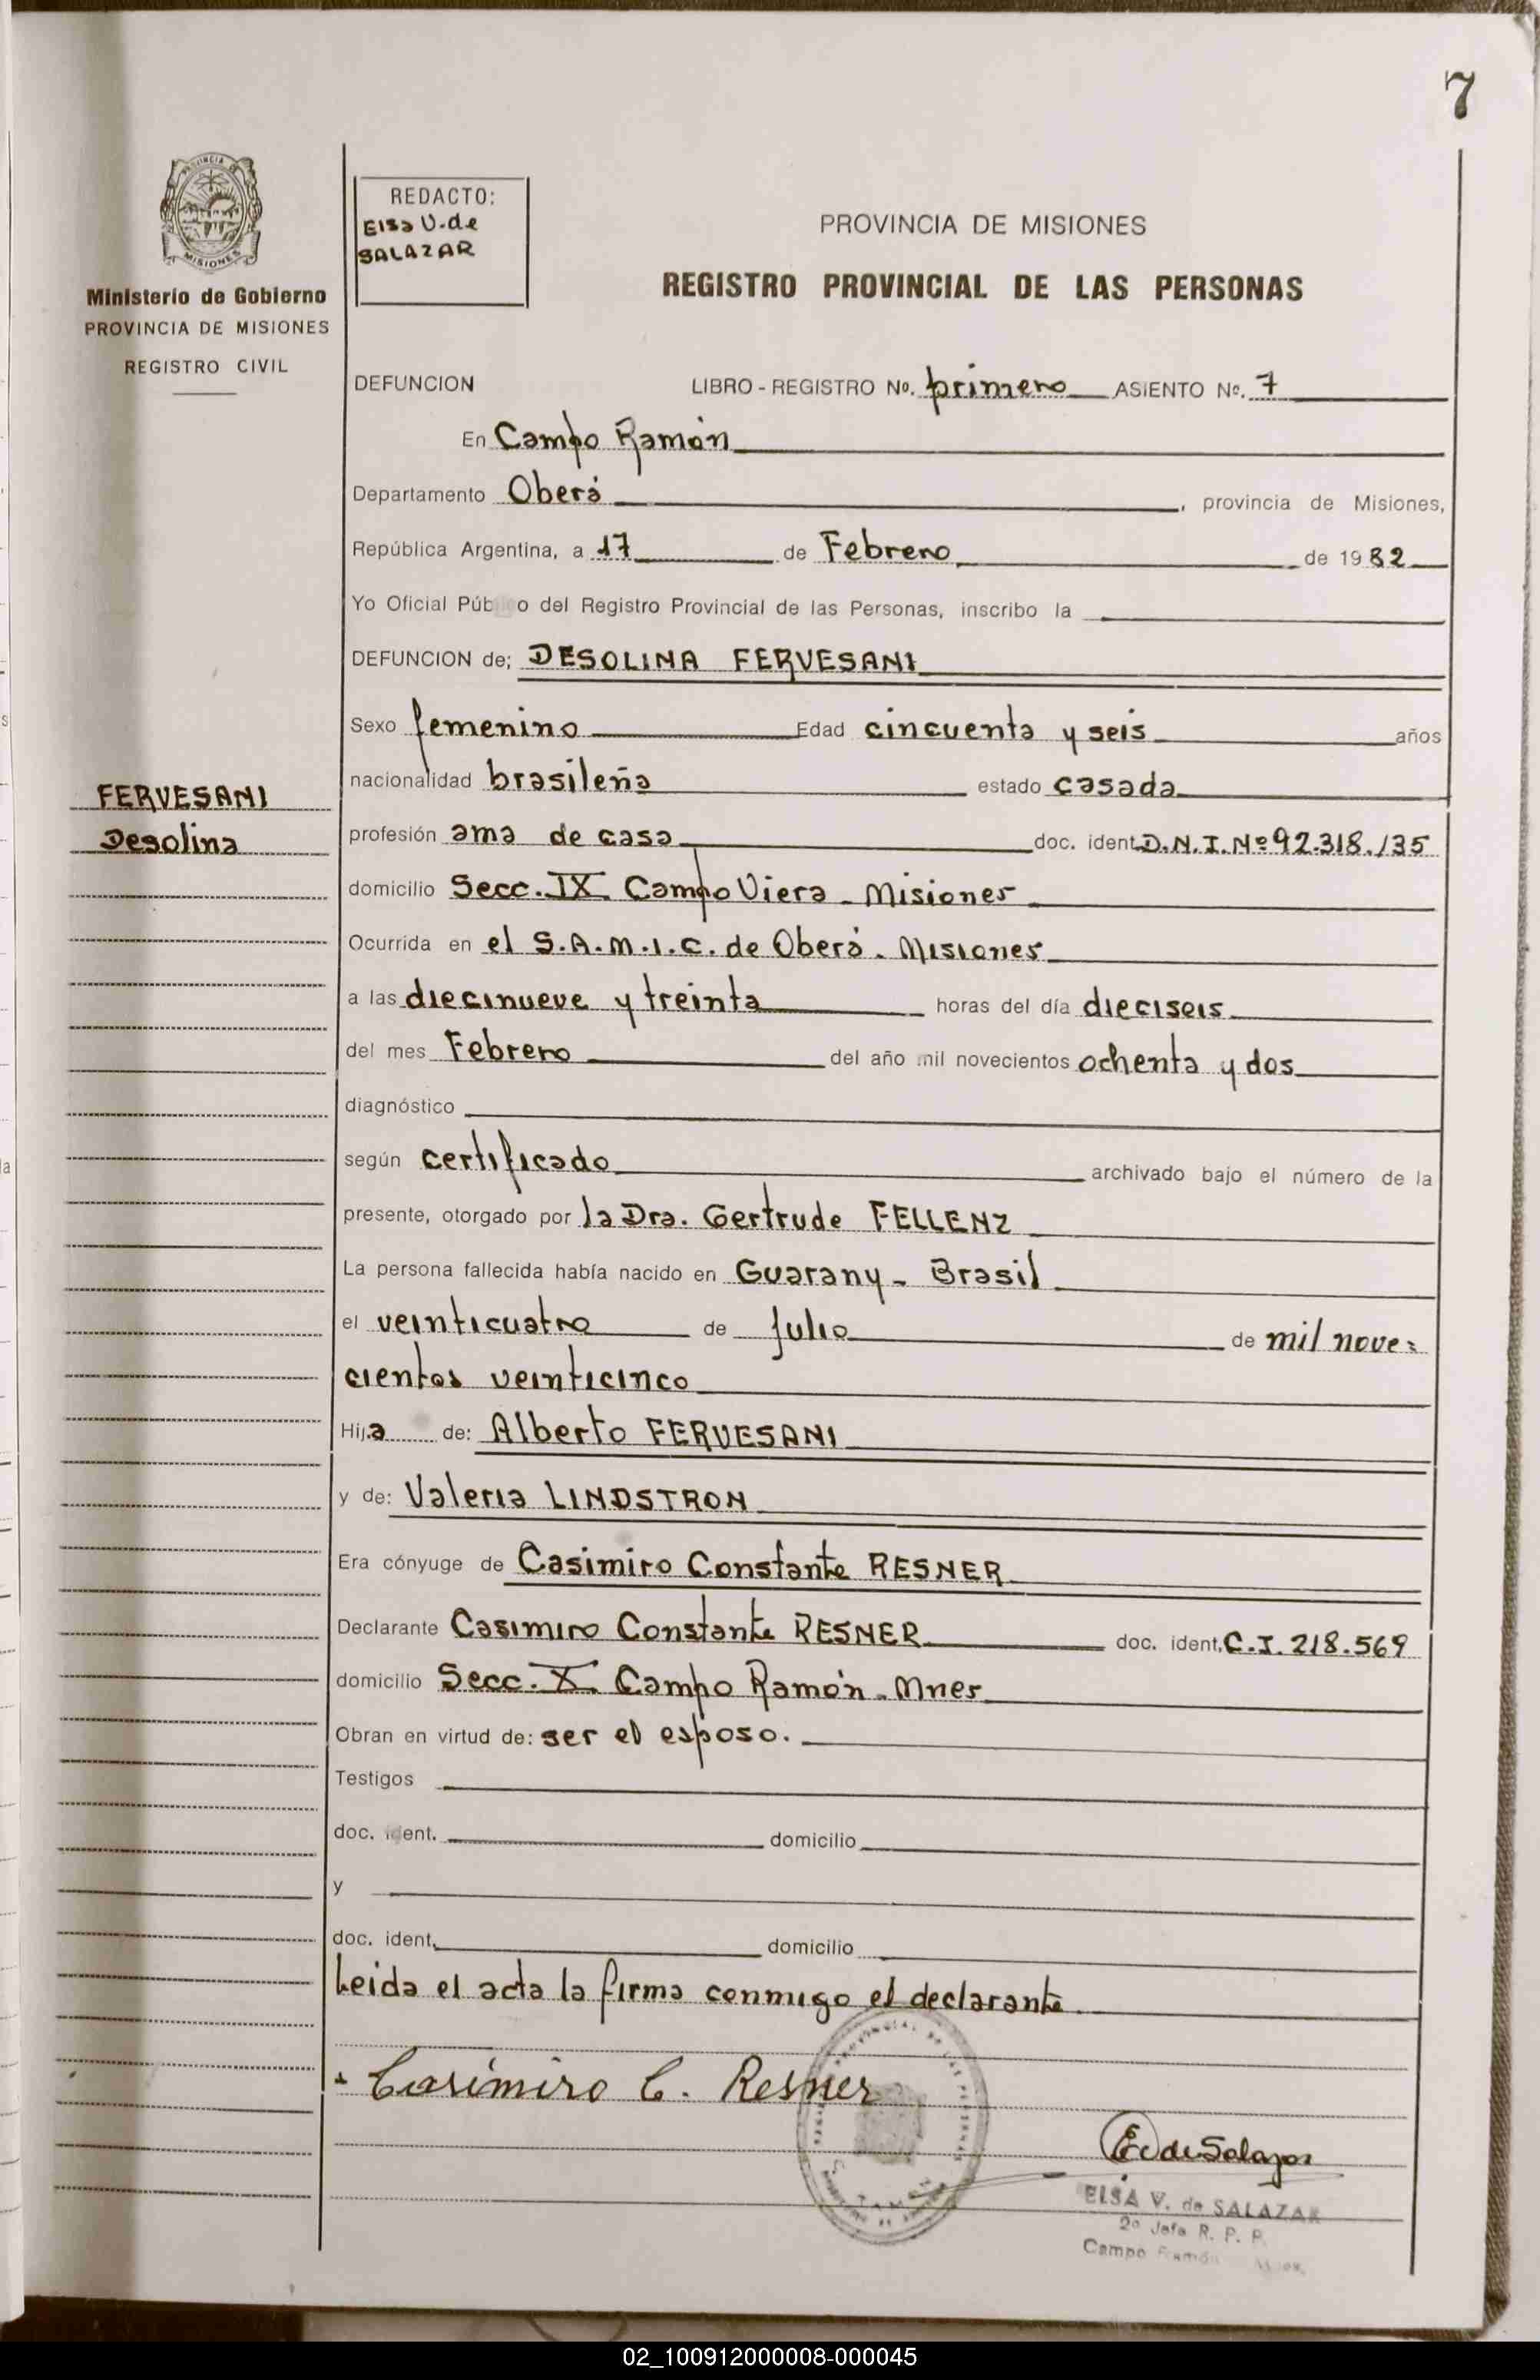 7
PROVINCIA DE
MISIONES
Ministerio de Gobierno
PROVINCIA DE MISIONES
REGISTRO CIVIL
REDACTO:
Elsa V. de
SALAZAR
PROVINCIA DE MISIONES
REGISTRO PROVINCIAL DE LAS PERSONAS
DEFUNCION LIBRO - REGISTRO No. primero ASIENTO No. 7
En Campo Ramón
Departamento Oberá, provincia de Misiones,
República Argentina, a 17 de Febrero de 1982
Yo Oficial Público del Registro Provincial de las Personas, inscribo la
DEFUNCION de; DESOLINA FERVESANI
Sexo femenino Edad cincuenta y seis años
nacionalidad brasileña estado casada
FERVESANI
Desolina
profesión ama de casa doc. ident. D.N.I. Nº 92.318.135
domicilio Secc. IX Campo Viera - Misiones
Ocurrida en el S.A.M.I.C. de Oberá. Misiones
a las diecinueve y treinta horas del día dieciseis
del mes Febrero del año mil novecientos ochenta y dos
diagnóstico
según certificado archivado bajo el número de la
presente, otorgado por la Dra. Gertrude FELLENZ
La persona fallecida había nacido en Guarany - Brasil
el veinticuatro de Julio de mil nove=
cientos veinticinco
Hija de: Alberto FERVESANI
y de: Valeria LINDSTRON
Era cónyuge de Casimiro Constante RESNER
Declarante Casimiro Constante RESNER doc. ident. C.I. 218.569
domicilio Secc. X Campo Ramón - Mnes
Obran en virtud de: ser el esposo.
Testigos
doc. ident. domicilio
y
doc. ident. domicilio
Leida el acta la firma conmigo el declarante
Casimiro C. Resner
EV de Salazar
ELSA V. de SALAZAR
2º Jefe R. P. P.
Campo Ramón Mnes.
02_100912000008-000045